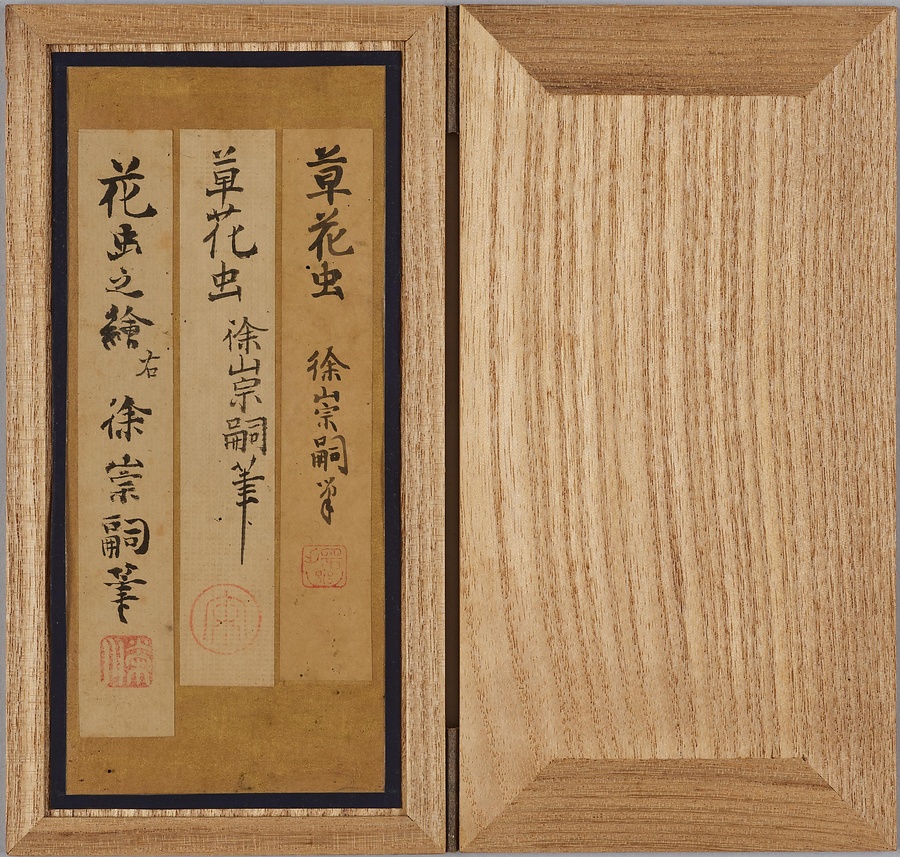 草花虫 徐崇嗣筆
草花虫 徐崇嗣筆
花虫之繪 右 徐崇嗣筆